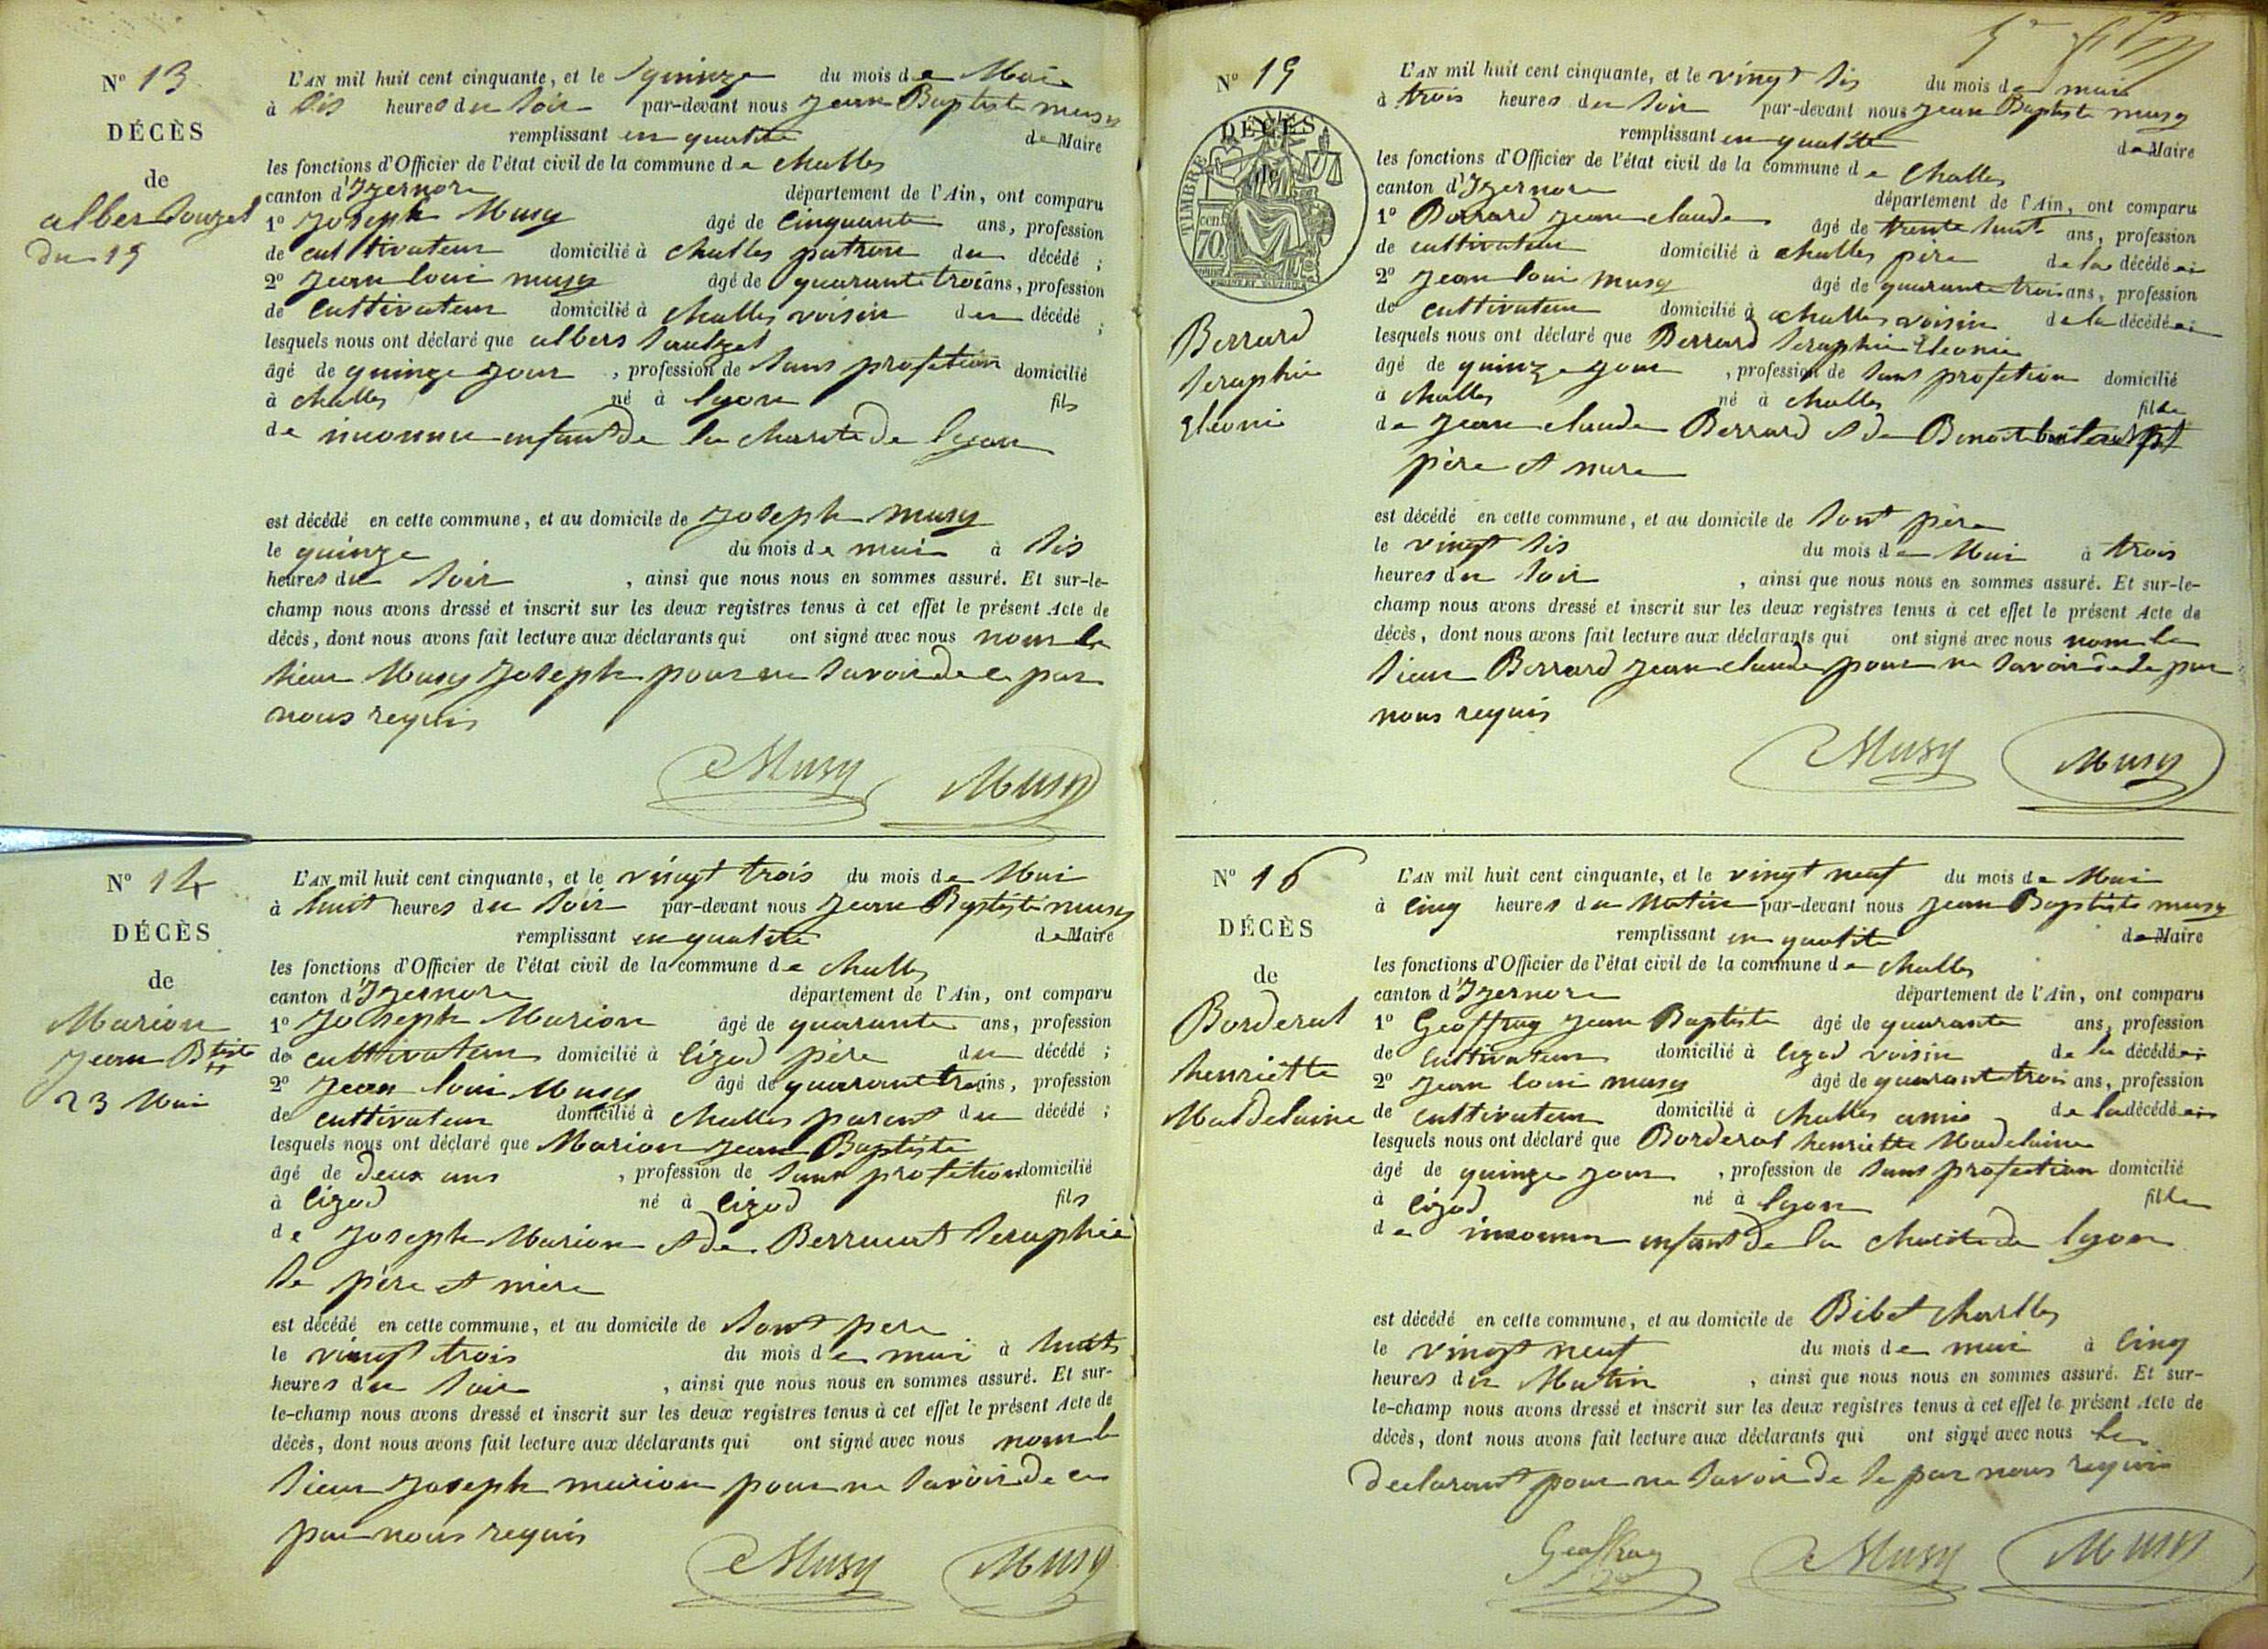 N° 13
DÉCÈS
de
alber Souzet
du 15
L'AN mil huit cent cinquante, et le quinze du mois de Mai
à sis heures du soir par-devant nous jean Baptiste musy
remplissant en qualité de Maire
les fonctions d'Officier de l'état civil de la commune de challes
canton d'Izernore département de l'Ain, ont comparu
1° joseph Musy âgé de cinquante ans, profession
de cultivateur domicilié à challes patron du décédé ;
2° jean loui musy âgé de quarante trois ans, profession
de cultivateur domicilié à challes voisin du décédé ;
lesquels nous ont déclaré que albers
âgé de quinze jour , profession de sans profetion domicilié
à challes né à lyon fils
de inconnu enfant de la charite de lyon
est décédé en cette commune, et au domicile de joseph musy
le quinze du mois de mai à sis
heures du soir , ainsi que nous nous en sommes assuré. Et sur-le-
champ nous avons dressé et inscrit sur les deux registres tenus à cet effet le présent Acte de
décès, dont nous avons fait lecture aux déclarants qui ont signé avec nous nom le
sieur Musy joseph pour ne savoir de ce par
nous requis
Musy Musy
N° 14
DÉCÈS
de
Marion
jean Btiste
23 Mai
L'AN mil huit cent cinquante, et le vingt trois du mois de Mai
à huit heures du soir par-devant nous jean Baptiste musy
remplissant en qualité de Maire
les fonctions d'Officier de l'état civil de la commune de challes
canton d'Izernore département de l'Ain, ont comparu
1° joseph Marion âgé de quarante ans, profession
de cultivateur domicilié à cizod père du décédé ;
2° jean loui Musy âgé de quarante trois ans, profession
de cultivateur domicilié à challes parent du décédé ;
lesquels nous ont déclaré que Marion jean Baptiste
âgé de deux ans , profession de sans profetion domicilié
à cizod né à cizod fils
de joseph Marion et de Seraphie
se père et mère
est décédé en cette commune, et au domicile de sont pere
le vingt trois du mois de mai à huit
heures du soir , ainsi que nous nous en sommes assuré. Et sur-
le-champ nous avons dressé et inscrit sur les deux registres tenus à cet effet le présent Acte de
décès, dont nous avons fait lecture aux déclarants qui ont signé avec nous nom le
sieur joseph marion pour ne savoir de ce
par nous requis
Musy Musy
N° 15
DÉCÈS
de
TIMBRE
cen. 70
Berrard
seraphie
eleoni
L'AN mil huit cent cinquante, et le vingt sis du mois de mai
à trois heures du soir par-devant nous jean Baptiste musy
remplissant en qualité de Maire
les fonctions d'Officier de l'état civil de la commune de challes
canton d'Izernore département de l'Ain, ont comparu
1° Berrard jean claude âgé de trente huit ans, profession
de cultivateur domicilié à challes père de la décédée
2° jean loui musy âgé de quarante trois ans, profession
de cultivateur domicilié à challes voisin de la décédée
lesquels nous ont déclaré que Berrard seraphie eleonie
âgé de quinze jour , profession de sans profetion domicilié
à challes né à challes fille
de jean claude Berrard et de
père et mere
est décédé en cette commune, et au domicile de sont père
le vingt sis du mois de Mai à trois
heures du soir , ainsi que nous nous en sommes assuré. Et sur-le-
champ nous avons dressé et inscrit sur les deux registres tenus à cet effet le présent Acte de
décès, dont nous avons fait lecture aux déclarants qui ont signé avec nous nom le
sieur Berrard jean claude pour ne savoir de le par
nous requis
Musy Musy
N° 16
DÉCÈS
de
Borderat
henriette
Maddelaine
L'AN mil huit cent cinquante, et le vingt neuf du mois de Mai
à cinq heures du Matin par-devant nous jean Baptiste musy
remplissant en qualité de Maire
les fonctions d'Officier de l'état civil de la commune de challes
canton d'Izernore département de l'Ain, ont comparu
1° Geoffray jean Baptiste âgé de quarante ans, profession
de cultivateur domicilié à cizod voisin de la décédée
2° jean loui musy âgé de quarante trois ans, profession
de cultivateur domicilié à challes amis de la décédée
lesquels nous ont déclaré que Borderat henriette Madelaine
âgé de quinze jour , profession de sans profection domicilié
à cizod né à lyon fille
de inconnu enfant de la charite de lyon
est décédé en cette commune, et au domicile de Bibet charlles
le vingt neuf du mois de mai à cinq
heures du Matin , ainsi que nous nous en sommes assuré. Et sur-
le-champ nous avons dressé et inscrit sur les deux registres tenus à cet effet le présent Acte de
décès, dont nous avons fait lecture aux déclarants qui ont signé avec nous les
declarant pour ne savoir de le par nous requis
Geoffray Musy Musy